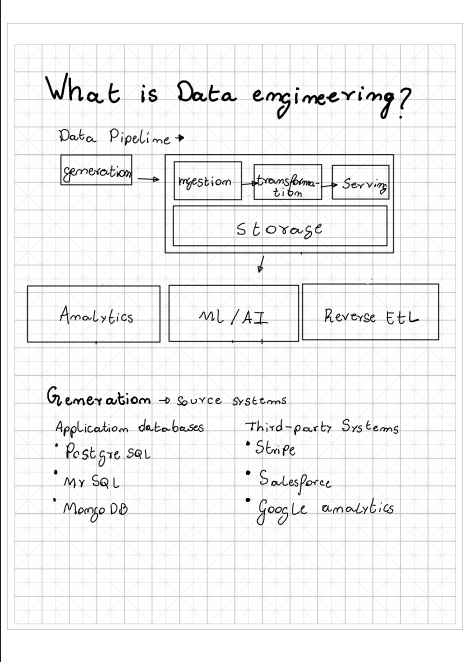 What is Data engineering?
Data Pipeline →
generation
Ingestion
transforma-
tion
Serving
Storage
Analytics
ML/AI
Reverse EtL
Generation → source systems
Application databases
• Postgre SQL
• My SQL
• Mongo DB
Third-party Systems
• Stripe
• Salesforce
• Google analytics